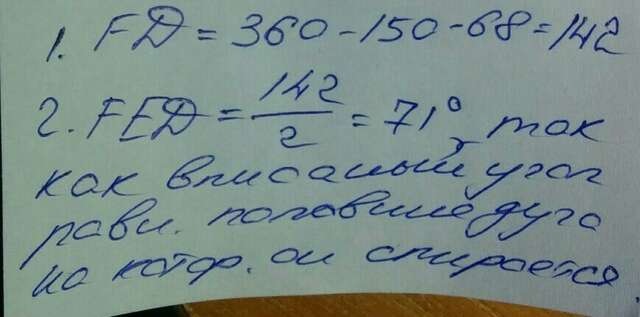 1. FD = 360 - 150 - 68 = 142
2. FED = 142/2 = 71°, так
как вписаный угол
равн. половине дуга
на котор. он опирается